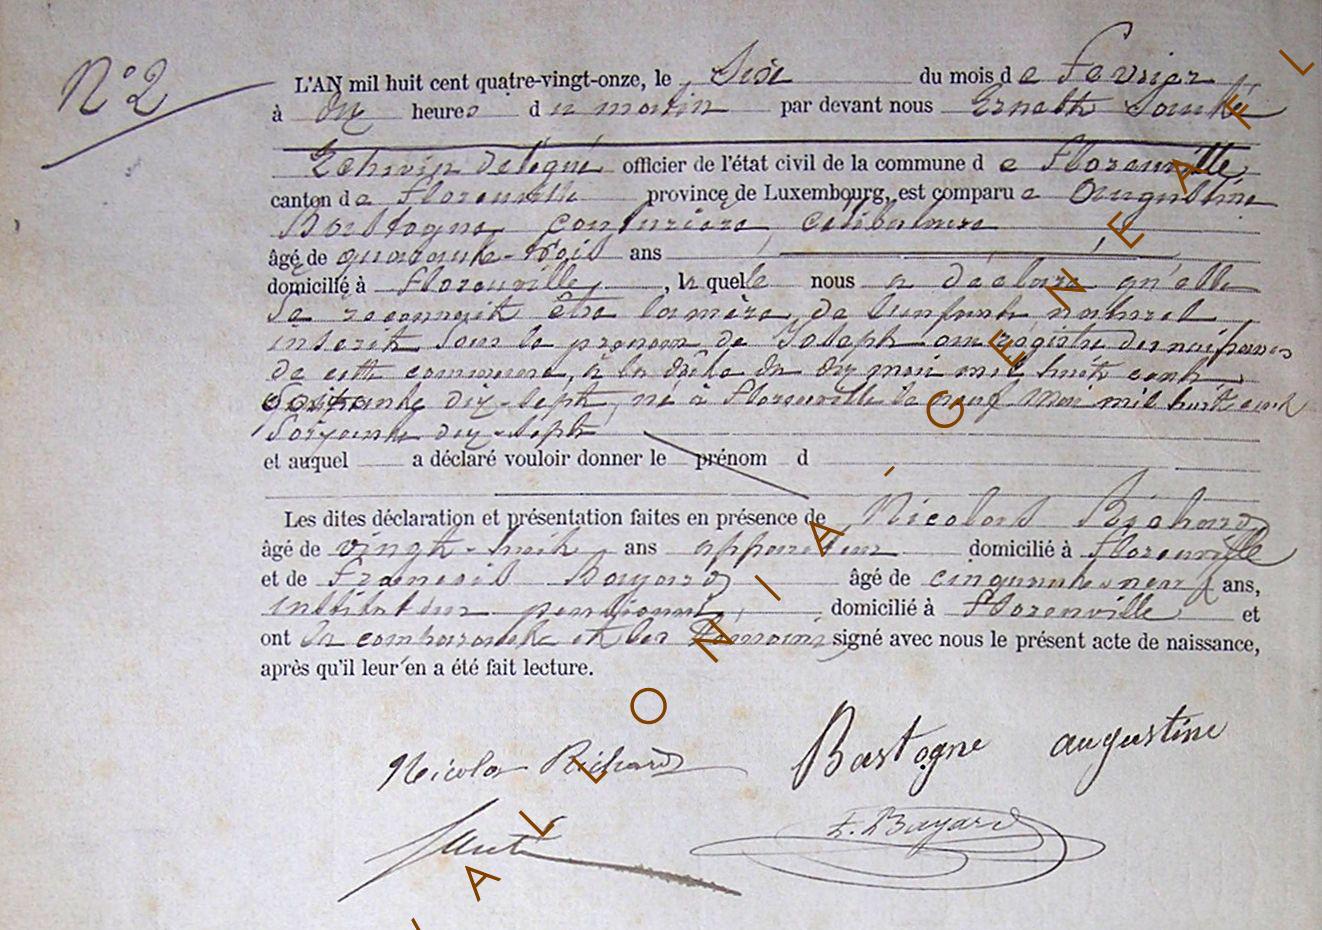 N° 2
L'AN mil huit cent quatre-vingt-onze, le Six du mois de fevrier
à dix heures du matin par devant nous Ernest
Echevin délégué officier de l'état civil de la commune de Florenville
canton de Florenville province de Luxembourg, est comparue Augustine
Bastogne couturière, célibataire
âgé de quarante-trois ans
domicilié à Florenville, la quelle nous a déclaré qu'elle
se reconnait être la mère de l'enfant naturel
inscrit sous le prenom de Joseph au régistre des naissances
de cette commune, à la date du dix mai mil huit cent
soixante dix-sept, né à Florenville le neuf Mai mil huit cent
soixante dix-sept
et auquel a déclaré vouloir donner le prénom d
Les dites déclaration et présentation faites en présence de Nicolas Richard
âgé de vingt-huit ans appariteur domicilié à Florenville
et de Francois Bayard âgé de cinquante neuf ans,
instituteur pensionné, domicilié à Florenville et
ont la comparante et les témoins signé avec nous le présent acte de naissance,
après qu'il leur en a été fait lecture.
Nicolas Richard Bastogne augustine
F. Bayard
A L L O N I A - G E N E A F L